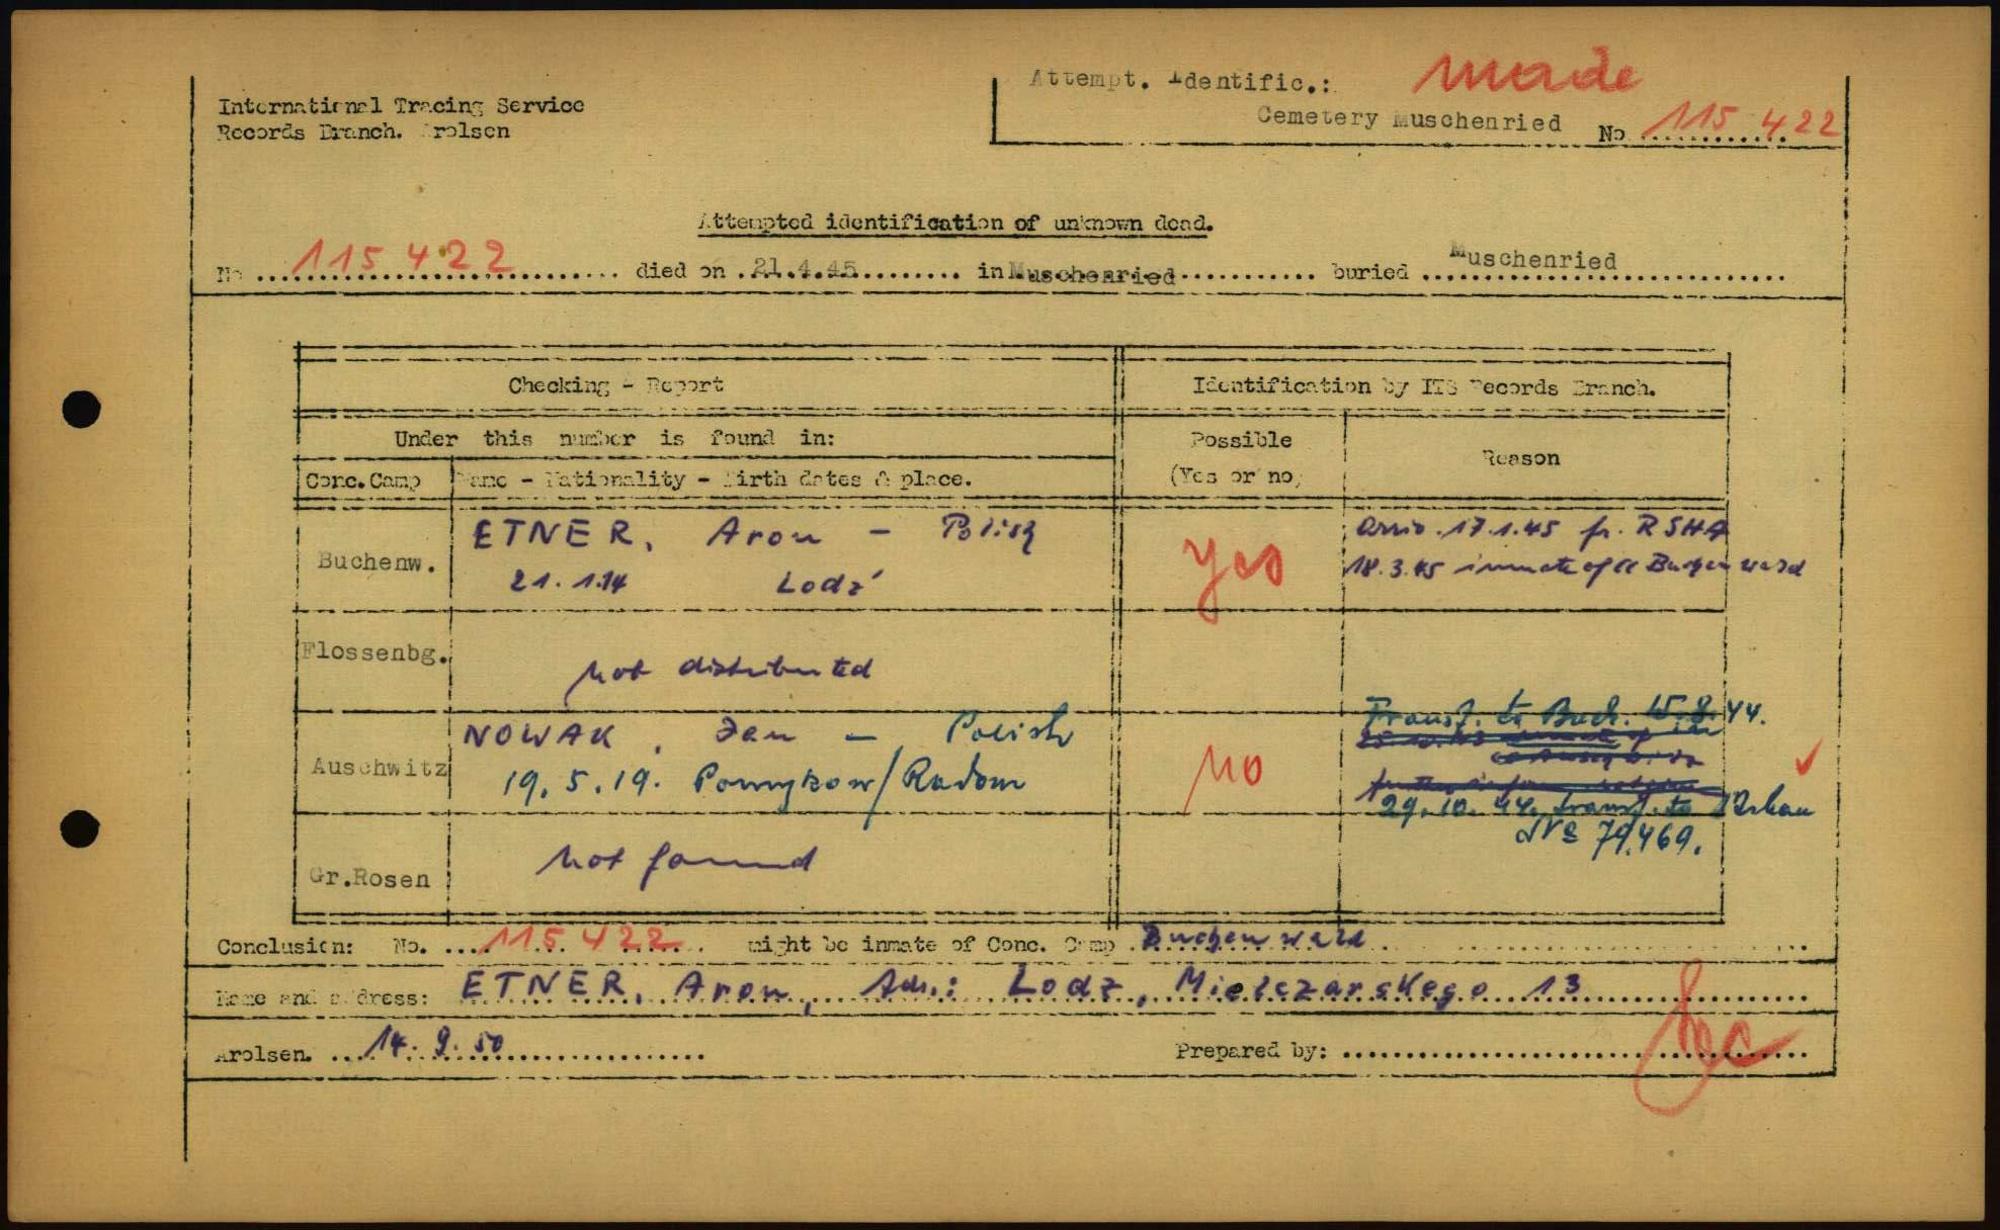 Attempt. Identific.: made
International Tracing Service
Cemetery Muschenried No 115 422
Records Branch. Arolsen
Attempted identification of unknown dead.
No 115 422 died on 21.4.45 in Muschenried buried Muschenried
Checking - Report
Identification by ITS Records Branch.
Under this number is found in:
Possible
(Yes or no)
Reason
Conc.Camp Name - Nationality - Birth dates & place.
Buchenw.
ETNER, Aron - Polish
21.1.14 Lodz
yes
Arriv. 17.1.45 fr. RSHA
18.3.45 inmate of cc Buchenwald
Flossenbg.
not distributed
Auschwitz
NOWAK, Jan - Polish
19.5.19. /Radom
no
Transf. to Buch. 15.8.44.
29.10.44. transf. to
No 79.469.
Gr.Rosen
not found
Conclusion: No. 115 422 might be inmate of Conc. Camp Buchenwald
Name and address: ETNER, Aron, Adr.: Lodz, Mielczarskego 13
Arolsen. 14.9.50
Prepared by: